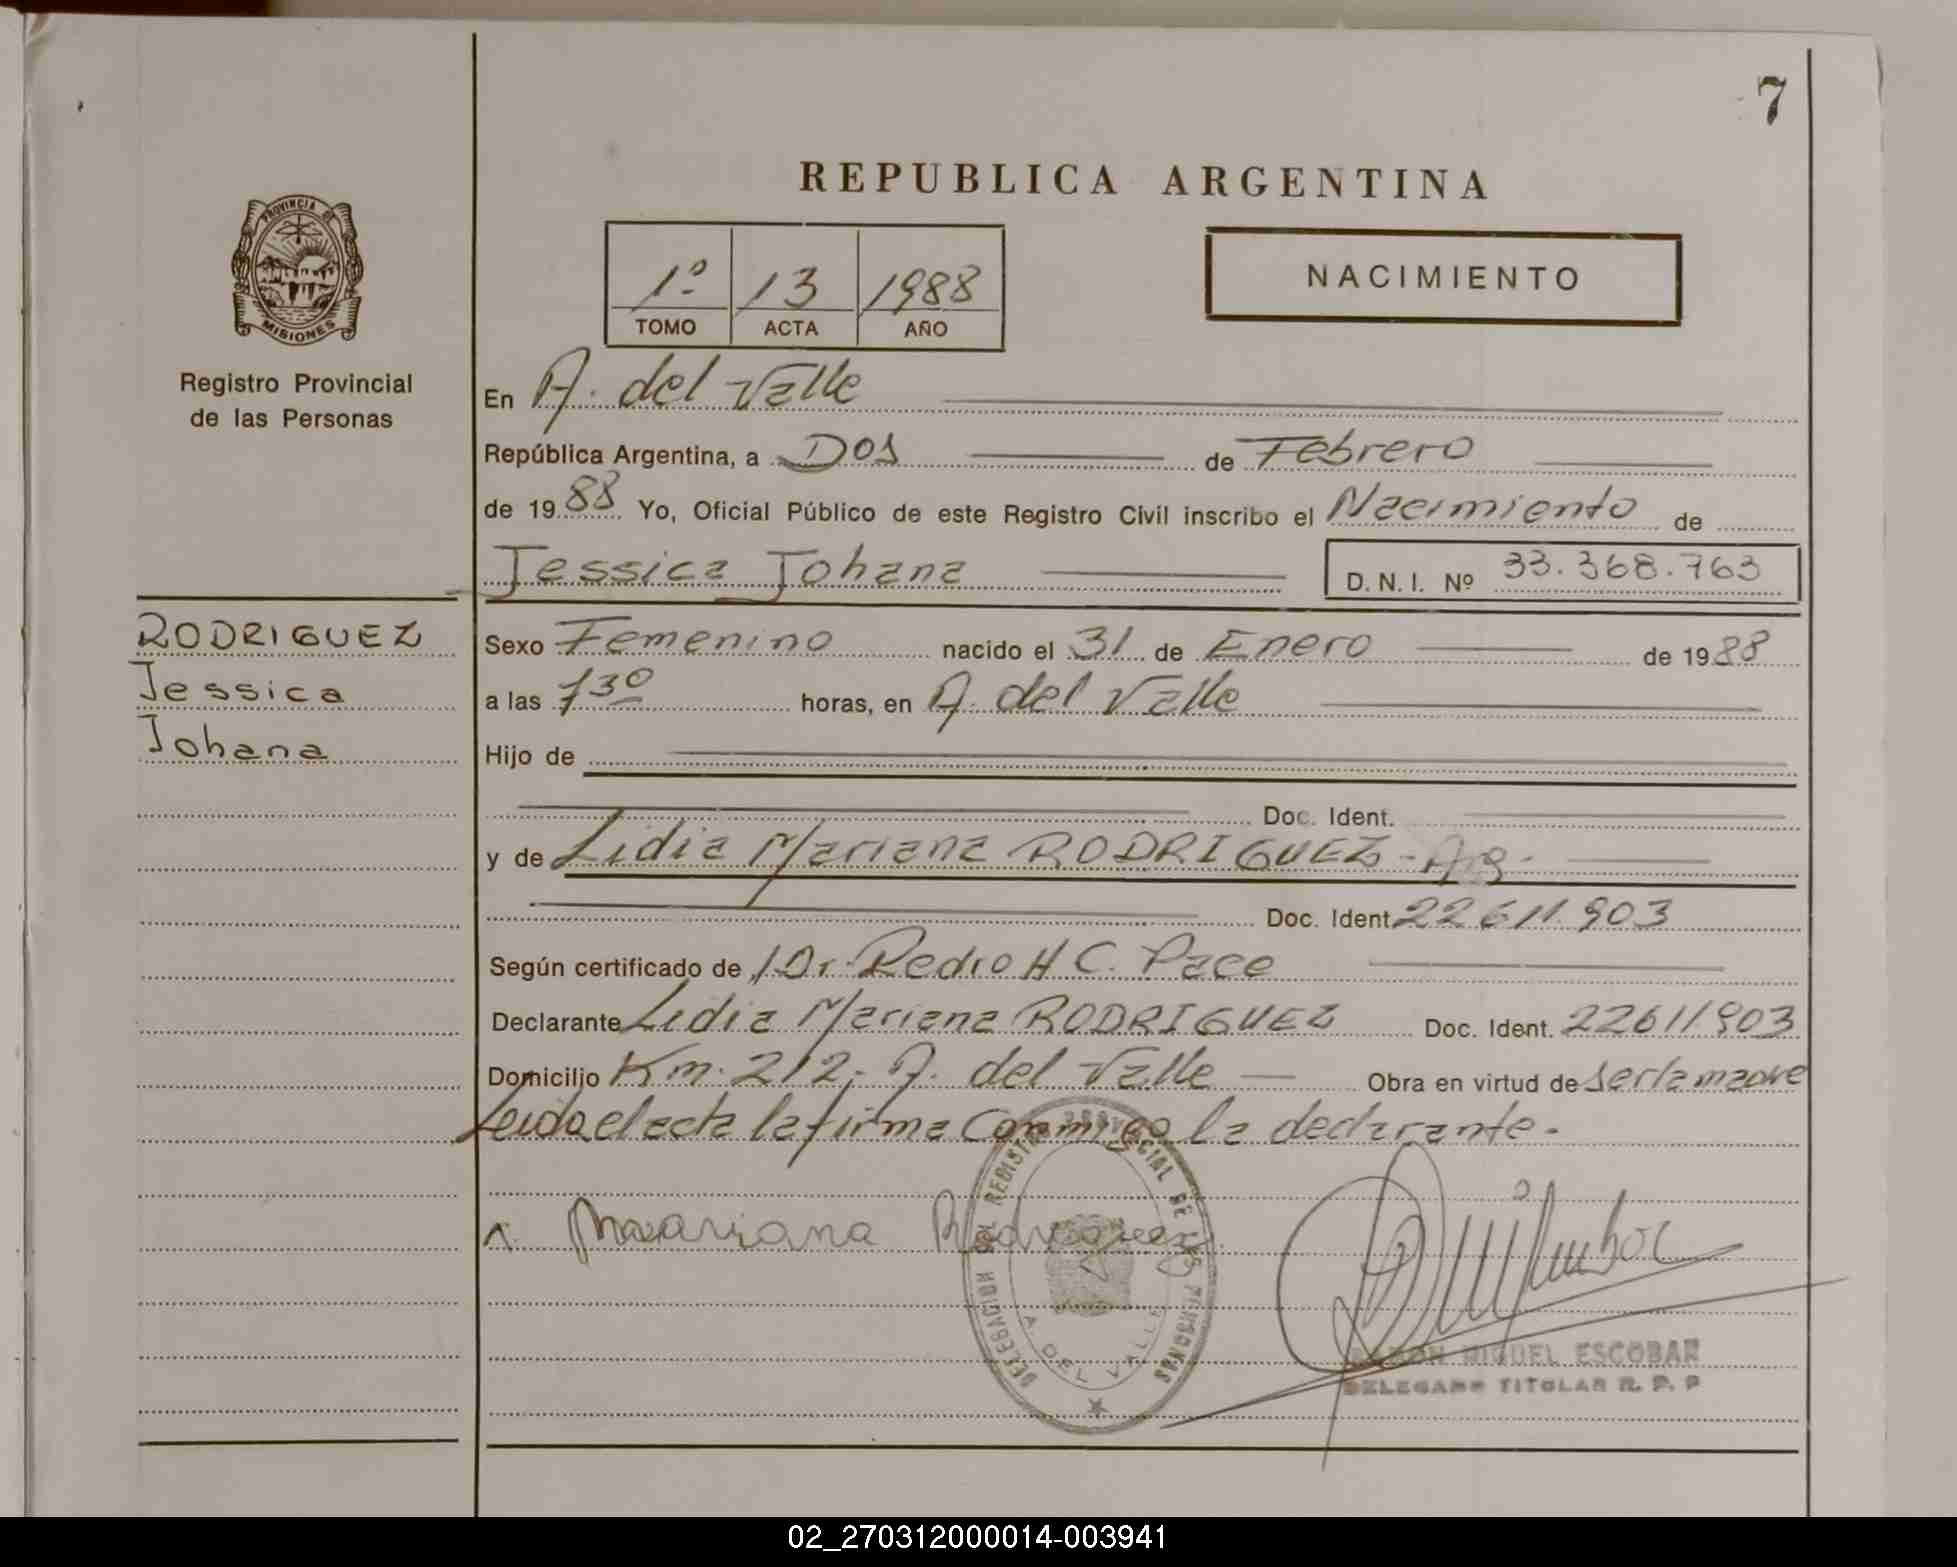 7
REPUBLICA ARGENTINA
PROVINCIA DE
MISIONES
Registro Provincial
de las Personas
1º 13 1988
TOMO ACTA AÑO
NACIMIENTO
En A. del Valle
República Argentina, a Dos de Febrero
de 1988 Yo, Oficial Público de este Registro Civil inscribo el Nacimiento de
Jessica Johana D. N. I. Nº 33.368.763
RODRIGUEZ
Jessica
Johana
Sexo Femenino nacido el 31 de Enero de 1988
a las 7³⁰ horas, en A. del Valle
Hijo de
Doc. Ident.
y de Lidia Mariana RODRIGUEZ - Arg.
Doc. Ident. 22611.903
Según certificado de Dr. Pedro H C. Pace
Declarante Lidia Mariana RODRIGUEZ Doc. Ident. 22611903
Domicilio Km. 212 - A. del Valle Obra en virtud de ser la madre
Leida el acta la firma conmigo la declarante.
Mariana Rodriguez
DELEGACION DEL REGISTRO PROVINCIAL DE LAS PERSONAS
A. DEL VALLE
RAMON MIGUEL ESCOBAR
DELEGADO TITULAR R. P. P
02_270312000014-003941